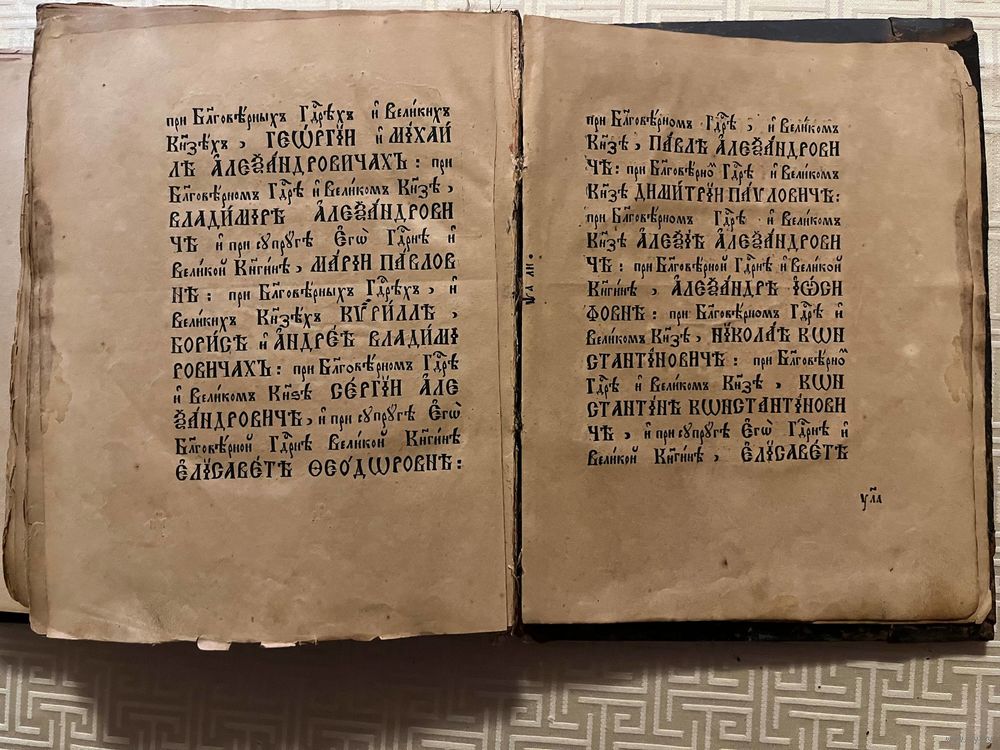 при Бл҃говѣ́рныхъ Гдⷭ҇рѣхъ и҆ Вели́кихъ
Кн҃зѣхъ, ГЕѠ́РГІИ и҆ МІХАИ́
ЛѢ А҆ЛЕѮА́НДРОВИЧАХЪ: при
Бл҃говѣ́рномъ Гдⷭ҇рѣ и҆ Вели́комъ Кн҃зѣ,
ВЛАДИ́МІРѢ А҆ЛЕѮА́НДРОВИ
ЧѢ и҆ при сꙋпрꙋ́гѣ Є҆гѡ̀ Гдⷭ҇рнѣ и҆
Вели́кой Кн҃ги́нѣ, МАРІ́И ПА́ВЛОВ
НѢ: при Бл҃говѣ́рныхъ Гдⷭ҇рѣхъ, и҆
Вели́кихъ Кн҃зѣхъ КѴРИ́ЛЛѢ,
БОРИ́СѢ и҆ А҆НДРЕ́Ѣ ВЛАДИ́МІ
РОВИЧАХЪ: при Бл҃говѣ́рномъ Гдⷭ҇рѣ
и҆ Вели́комъ Кн҃зѣ СЕ́РГІИ А҆ЛЕ
ѮА́НДРОВИЧѢ, и҆ при сꙋпрꙋ́гѣ Є҆гѡ̀
Бл҃говѣ́рной Гдⷭ҇рнѣ Вели́кой Кн҃ги́нѣ
Є҆ЛІСАВЕ́ТѢ ѲЕО́ДѠРОВНѢ:
при Бл҃говѣ́рномъ Гдⷭ҇рѣ, и҆ Вели́комъ
Кн҃зѣ, ПА́ВЛѢ А҆ЛЕѮА́НДРОВИ
ЧѢ: при Бл҃говѣ́рноⷨ Гдⷭ҇рѣ и҆ Вели́комъ
Кн҃зѣ ДИМИ́ТРІИ ПА́ѴЛОВИЧѢ:
при Бл҃говѣ́рномъ Гдⷭ҇рѣ и҆ Вели́комъ
Кн҃зѣ А҆ЛЕѮІ́Ѣ А҆ЛЕѮА́НДРОВИ
ЧѢ: при Бл҃говѣ́рной Гдⷭ҇рнѣ и҆ Вели́кой
Кн҃ги́нѣ, А҆ЛЕѮА́НДРѢ І҆Ѡ́СИ
ФОВНѢ: при Бл҃говѣ́рномъ Гдⷭ҇рѣ и҆
Вели́комъ Кн҃зѣ, НІКОЛА́Ѣ КѠН
СТАНТІ́НОВИЧѢ: при Бл҃говѣ́рноⷨ
Гдⷭ҇рѣ, и҆ Вели́комъ Кн҃зѣ, КѠН
СТАНТІ́НѢ КѠНСТАНТІ́НОВИ
ЧѢ, и҆ при сꙋпрꙋ́гѣ Є҆гѡ̀ Гдⷭ҇рнѣ и҆
Вели́кой Кн҃ги́нѣ, Є҆ЛІСАВЕ́ТѢ